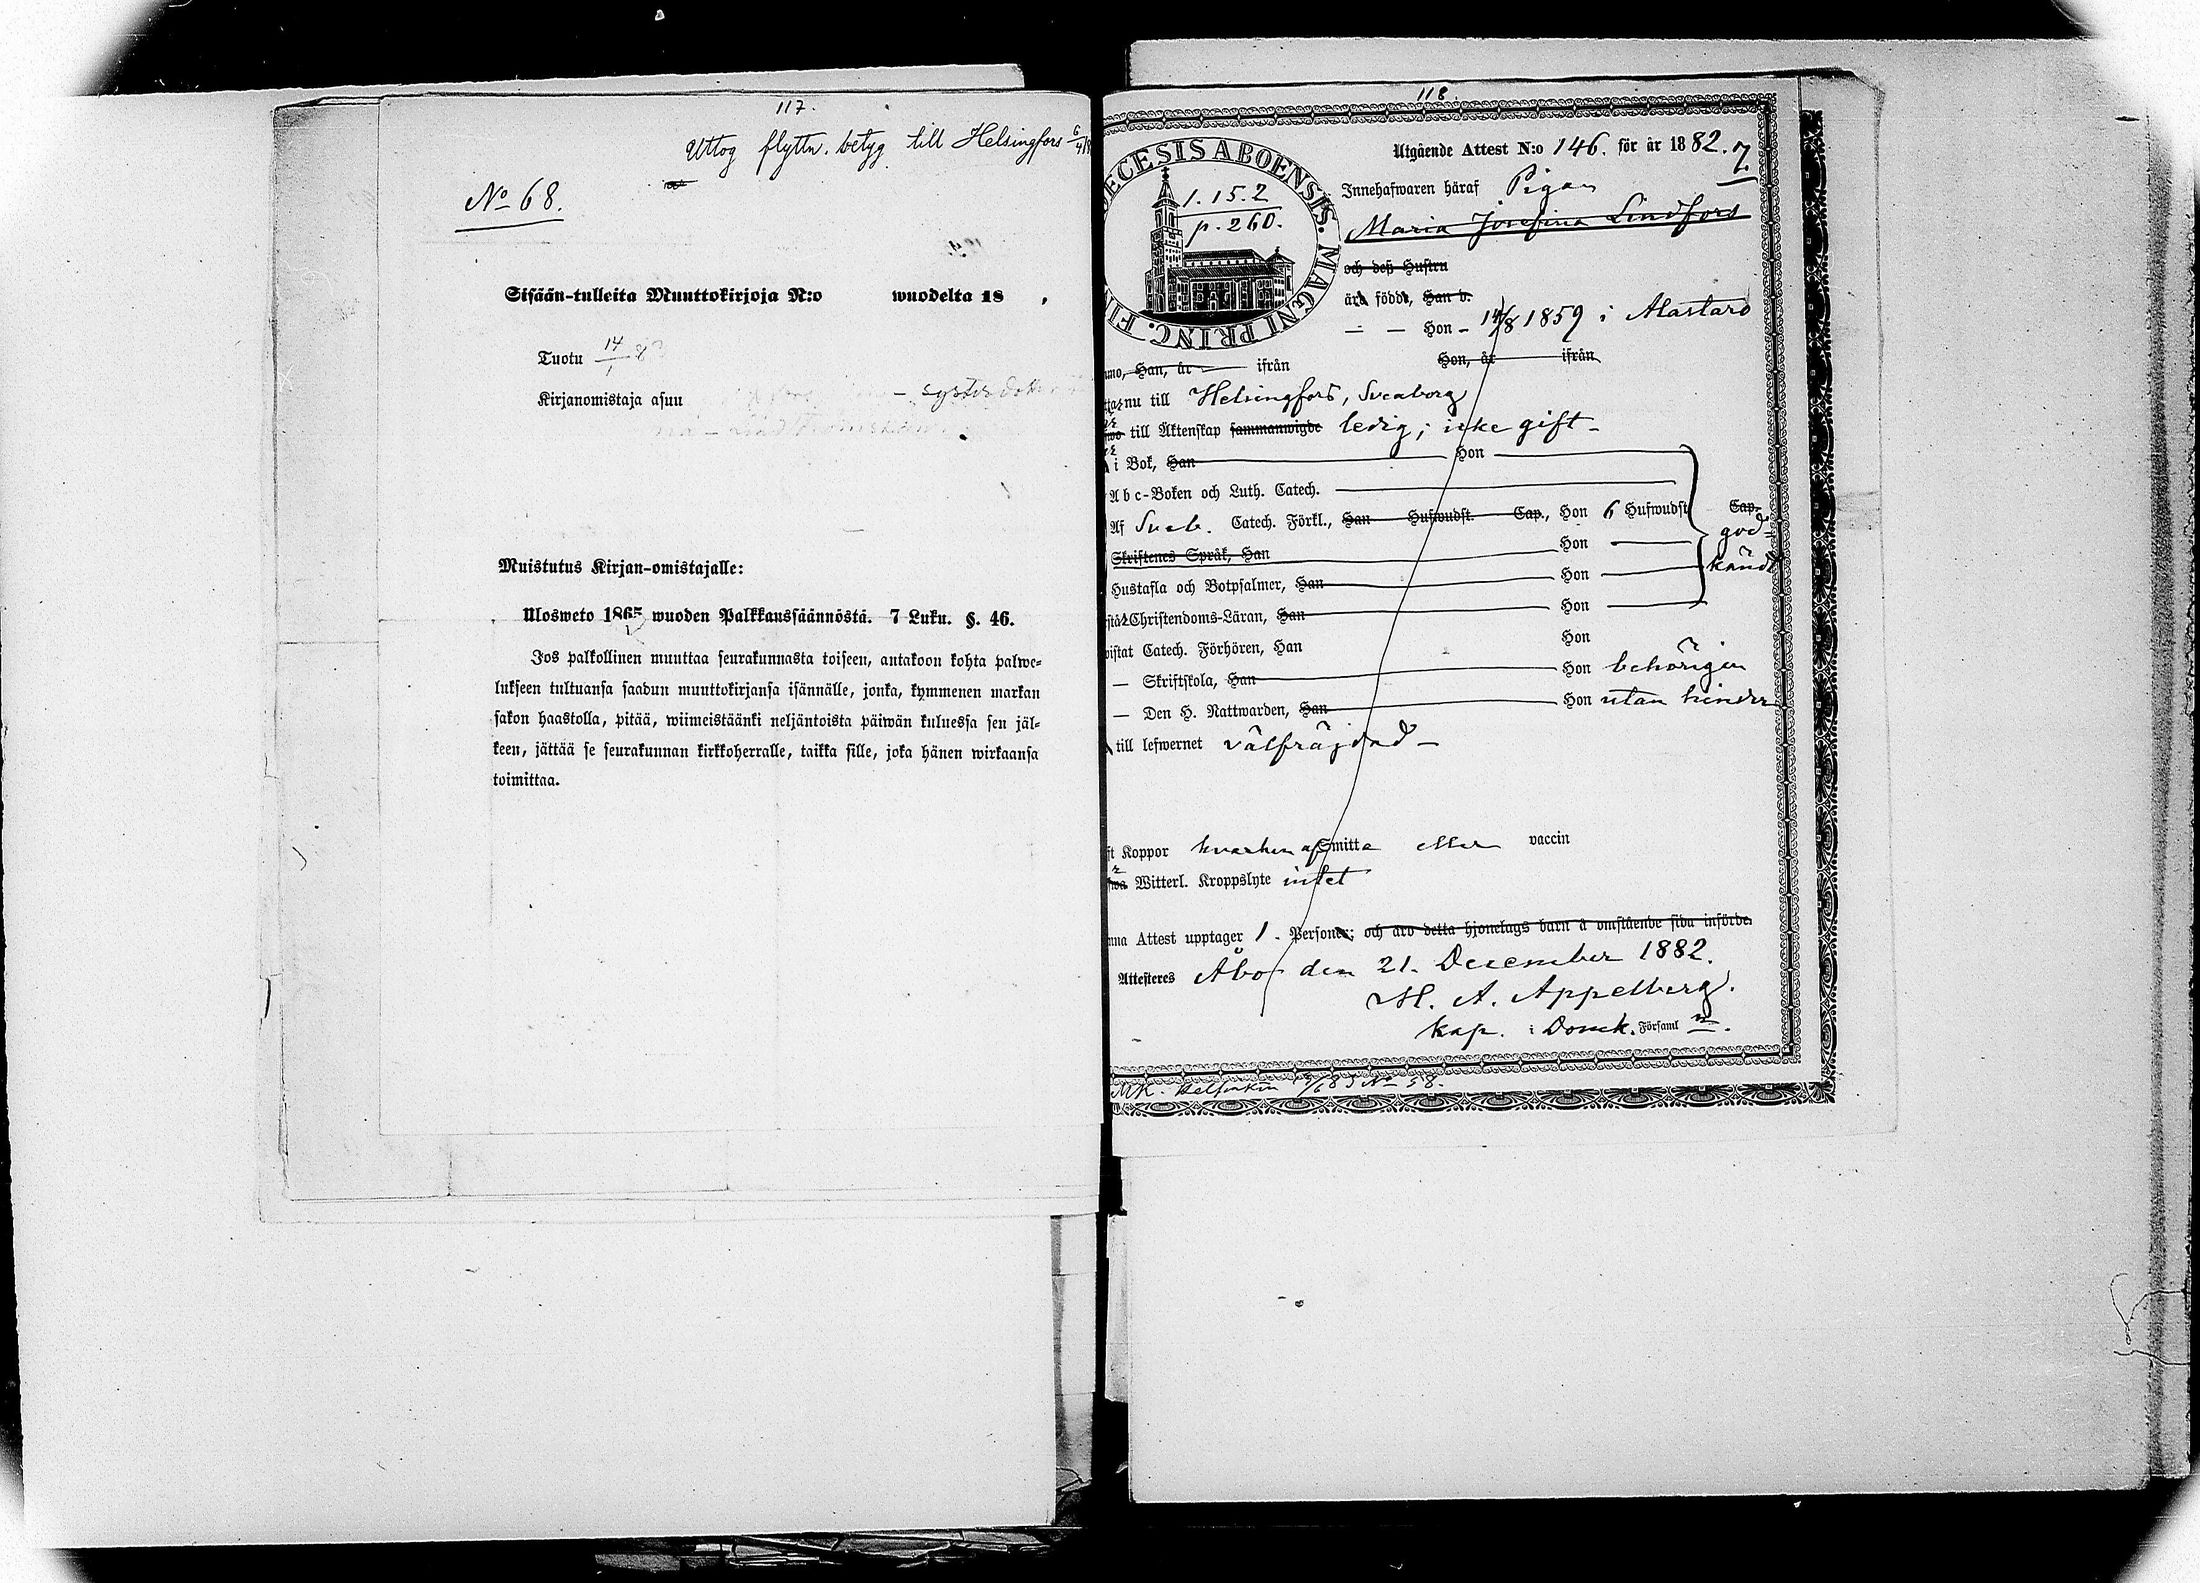 117.
Uttog flyttn. betyg till Helsingfors
No 68.
Sisään-tulleita Muuttokirjoja N:o wuodelta 18 .
Tuotu 14/1 83
Kirjanomistaja asuu
Muistutus Kirjan-omistajalle:
Ulosweto 1865 wuoden Palkkaussäännöstä. 7 Luku. §. 46.
Jos palkollinen muuttaa seurakunnasta toiseen, antakoon kohta palwe-
lukseen tultuansa saadun muuttokirjansa isännälle, jonka, kymmenen markan
sakon haastolla, pitää, wiimeistäänki neljäntoista päiwän kuluessa sen jäl-
keen, jättää se seurakunnan kirkkoherralle, taikka sille, joka hänen wirkaansa
toimittaa.
118.
Utgående Attest N:o 146. för år 1882. 7.
ECESIS ABOENSIS. MAGNI PRINC. FI
1. 15. 2
p. 260.
Innehafwaren häraf Pigan
Maria Josefina Lindfors
och deß Hustru
äro födde, Han d.
— — Hon - 14/8 1859 i Alastaro
Han, år — ifrån Hon, år ifrån
nu till Helsingfors, Sveaborg
till Äktenskap sammanwigde ledig; icke gift -
i Bok, Han Hon
Abc-Boken och Luth. Catech.
Af Sveb. Catech. Förkl., Han Hufwudst. Cap., Hon 6 Hufwudst Cap.
god-
känd
Skriftenes Språk, Han Hon
Hustafla och Botpsalmer, Han Hon
Christendoms-Läran, Han Hon
Catech. Förhören, Han Hon
— Skriftskola, Han Hon behörigen
— Den H. Nattwarden, Han Hon utan hinder
till lefwernet välfräjdad -
Koppor hvarken af Smitta eller vaccin
Witterl. Kroppslyte intet
Attest upptager 1. Personer; och äro detta hjonelags barn å omstående sida införde.
Attesteres Åbo den 21. December 1882.
M. A. Appelberg.
kap. i Domk. Församl n.
MK. Helsinkiin No 58.